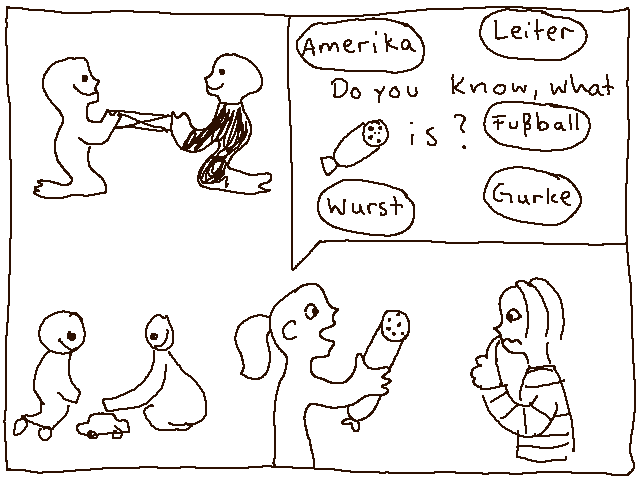 Amerika
Leiter
Do you know, what
is?
Fußball
Wurst
Gurke